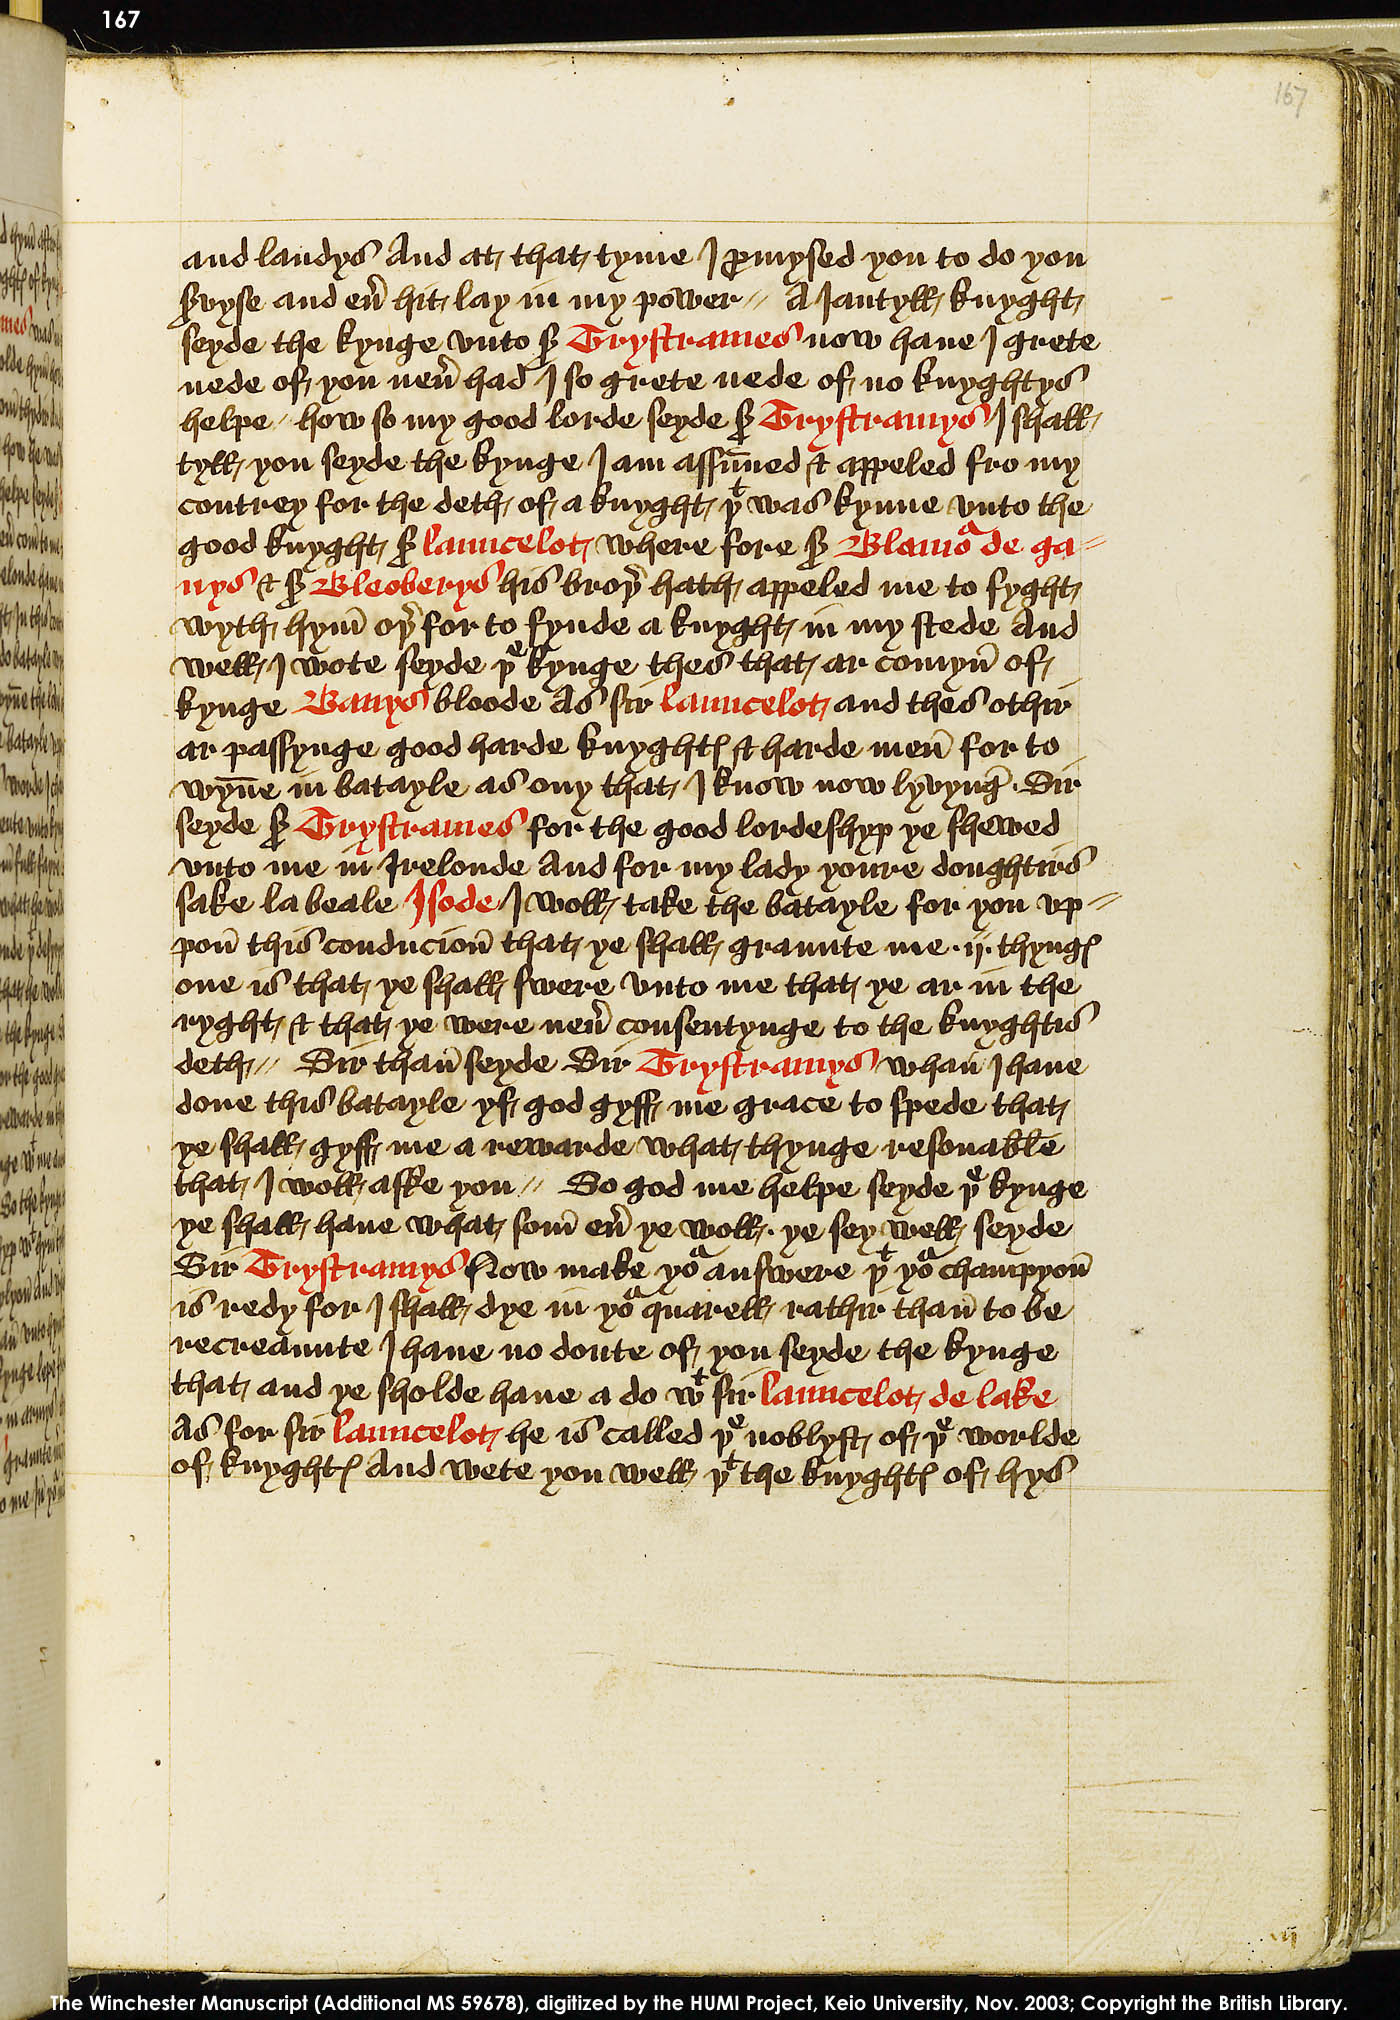 167
167
and landys And at that tyme I ꝓmysed you to do you
s̾vyse and eu̾ hit lay in my power // A Jantyll knyght
seyde the kynge vnto s̾ Trystrames now haue I grete
nede of you neu̾ had I so grete nede of no knyghtys
helpe // how so my good lorde seyde s̾ Trystramys I shall
tyll you seyde the kynge I am assūned & appeled fro my
contrey for the deth of a knyght þᵗ was kynne vnto the
good knyght s̾ launcelot where fore s̾ Blamoʳ de ga=
nys & s̾ Bleoberys his broþ̾ hath appeled me to fyght
wyth hym̄ oþ̾ for to fynde a knyght in my stede And
well I wote seyde þᵉ kynge thes that ar comyn̄ of
kynge Banys bloode As sir launcelot and thes othir
ar passynge good harde knyghtꝭ & harde men̄ for to
wyn̄e in batayle as ony that I know now lyvyng̾ . Sir
seyde s̾ Trystrames for the good lordeshyp ye shewed
vnto me in Irelonde And for my lady youre doughtirs
sake la beale Isode I woll take the batayle for you vp=
pon̄ this conducion̄ that ye shall graunte me .ij. thyngꝭ
one is that ye shall swere vnto me that ye ar in the
ryght & that ye were neu̾ consentynge to the knyghtis
deth // Sir than̄ seyde Sir Trystramys whan̄ I haue
done this batayle yf god gyff me grace to spede that
ye shall gyff me a rewarde what thynge resonable
that I woll aske you // So god me helpe seyde þᵉ kynge
ye shall haue what som̄ eu̾ ye woll . ye sey well seyde
Sir Trystramys Now make yoʳ answere þᵗ yoʳ champyon̄
is redy for I shall dye in yoʳ quarell rathir than̄ to be
recreaunte I haue no doute of you seyde the kynge
that and ye sholde haue a do wᵗ sir launcelot de lake
As for sir launcelot he is called þᵉ noblyst of þᵉ worlde
of knyghtꝭ And wete you well þᵗ the knyghtꝭ of hys
The Winchester Manuscript (Additional MS 59678), digitized by the HUMI Project, Keio University, Nov. 2003; Copyright the British Library.